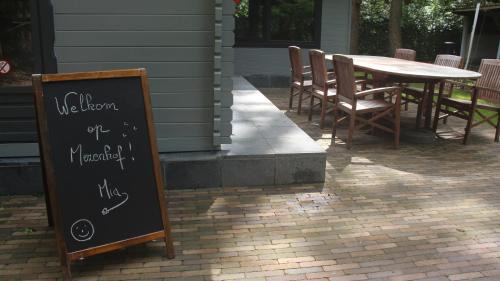 Welkom
op
Mezenhof!
Mia